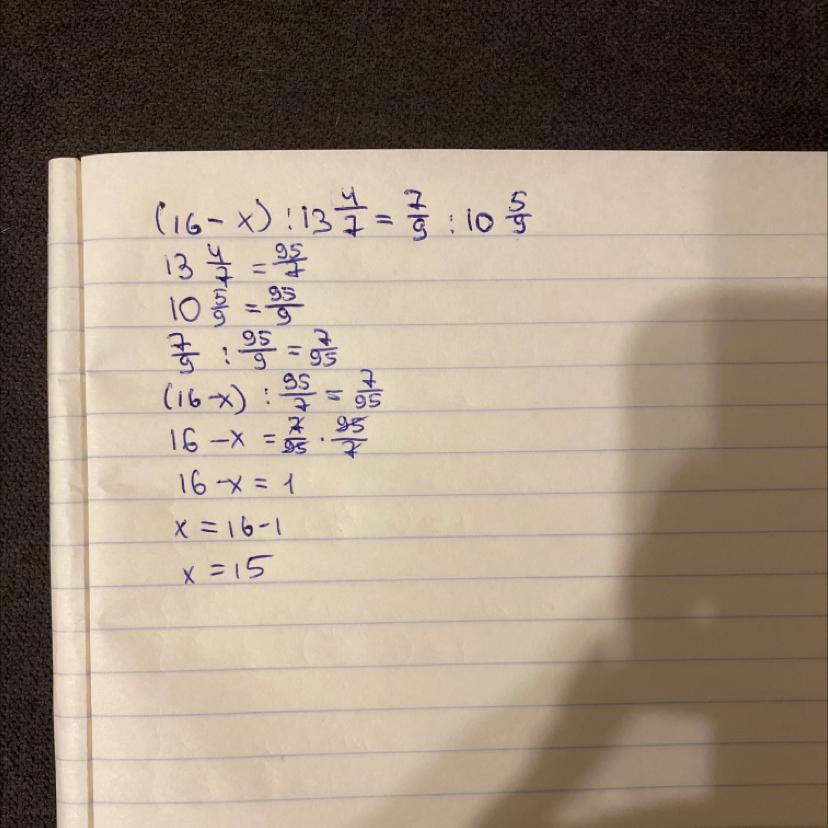 (16 - x) : 13 4/7 = 7/9 : 10 5/9
13 4/7 = 95/7
10 5/9 = 95/9
7/9 : 95/9 = 7/95
(16 - x) : 95/7 = 7/95
16 - x = 7/95 · 95/7
16 - x = 1
x = 16 - 1
x = 15